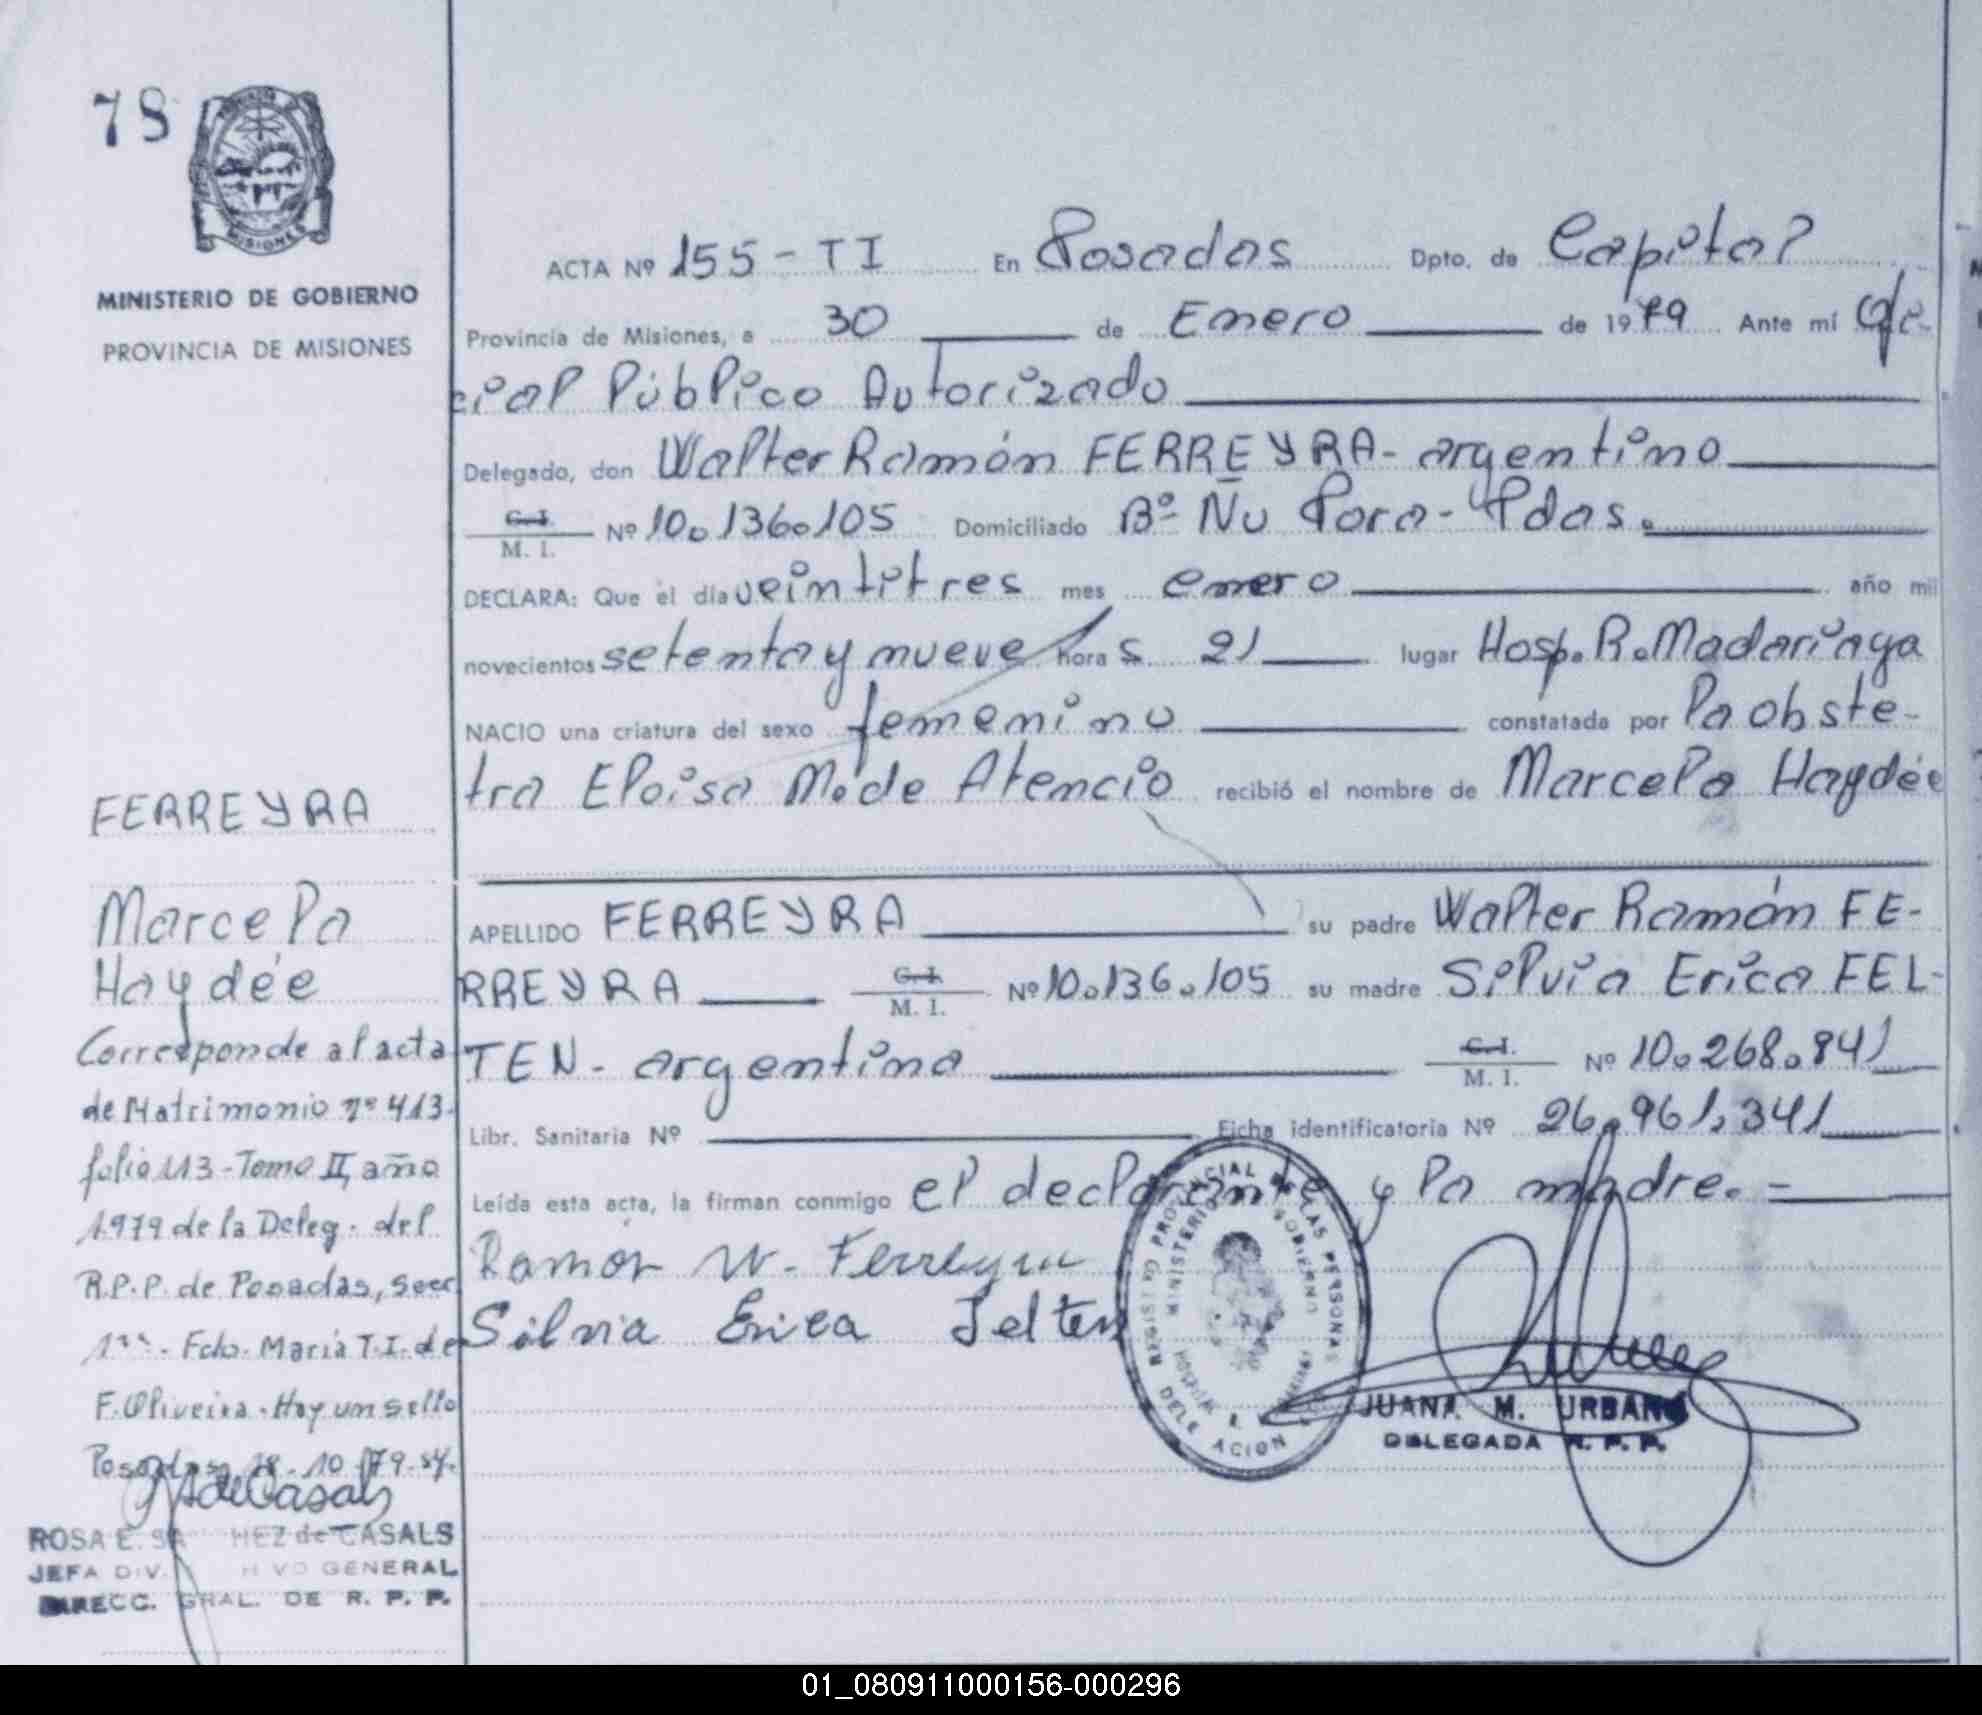 78
MISIONES
MINISTERIO DE GOBIERNO
PROVINCIA DE MISIONES
FERREYRA
Marcela
Haydée
Corresponde al acta
de Matrimonio nº 413-
folio 113-Tomo II, año
1979 de la Deleg. del
R.P.P. de Posadas, secc
1ra. - Fdo. María T.I. de
F. Oliveira. Hay un sello
Posadas, 18-10-79.
ROSA E. SA HEZ de CASALS
JEFA DIV. H VO GENERAL
DIRECC. GRAL. DE R. P. P.
ACTA Nº 155-TI En Posadas Dpto. de Capital
Provincia de Misiones, a 30 de Enero de 1979 Ante mí Ofi-
cial Público Autorizado
Delegado, don Walter Ramón FERREYRA- argentino
C.I. M. I. Nº 10.136.105 Domiciliado Bº Ñu Pora- Pdas.
DECLARA: Que el día veintitres mes enero año mil
novecientos setenta y nueve hora s 21 lugar Hosp. R. Madariaga
NACIO una criatura del sexo femenino constatada por la obste-
tra Eloisa M. de Atencio recibió el nombre de Marcela Haydée
APELLIDO FERREYRA su padre Walter Ramón FE-
RREYRA C.I. M. I. Nº 10.136.105 su madre Silvia Erica FEL-
TEN- argentina C.I. M. I. Nº 10.268.841
Libr. Sanitaria Nº Ficha identificatoria Nº 26.961.341
Leída esta acta, la firman conmigo el declarante y la madre.=
Ramón W. Ferreyra
Silvia Erica Felten
REGISTRO PROVINCIAL DE LAS PERSONAS
MINISTERIO DE GOBIERNO
DELEGACION
JUANA M. URBANO
DELEGADA R. P. P.
01_080911000156-000296